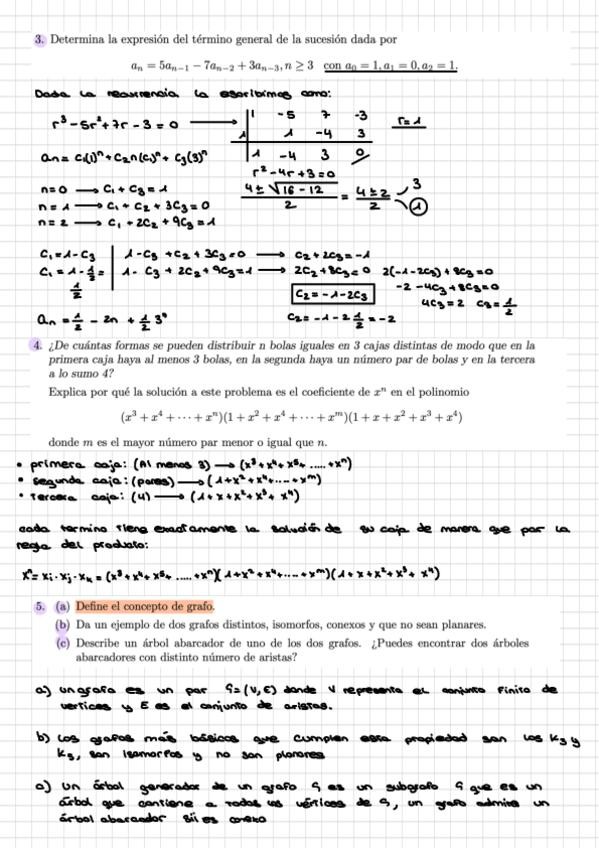 3. Determina la expresión del término general de la sucesión dada por
aₙ = 5aₙ₋₁ − 7aₙ₋₂ + 3aₙ₋₃, n ≥ 3 con a₀ = 1, a₁ = 0, a₂ = 1.
Dada la recurrencia la escribimos como:
r³ - 5r² + 7r - 3 = 0 → 1 -5 7 -3 r=1
1 1 -4 3
aₙ = C₁(1)ⁿ + C₂n(1)ⁿ + C₃(3)ⁿ 1 -4 3 0
r² - 4r + 3 = 0
n=0 → C₁ + C₃ = 1 4 ± √16 - 12 / 2 = 4 ± 2 / 2 3 1
n=1 → C₁ + C₂ + 3C₃ = 0
n=2 → C₁ + 2C₂ + 9C₃ = 1
C₁ = 1 - C₃ 1 - C₃ + C₂ + 3C₃ = 0 → C₂ + 2C₃ = -1
C₁ = 1 - 1/2 = 1/2 1 - C₃ + 2C₂ + 9C₃ = 1 → 2C₂ + 8C₃ = 0 2(-1-2C₃) + 8C₃ = 0
C₂ = -1 - 2C₃ -2 - 4C₃ + 8C₃ = 0
4C₃ = 2 C₃ = 1/2
aₙ = 1/2 - 2n + 1/2 3ⁿ C₂ = -1 - 2 1/2 = -2
4. ¿De cuántas formas se pueden distribuir n bolas iguales en 3 cajas distintas de modo que en la
primera caja haya al menos 3 bolas, en la segunda haya un número par de bolas y en la tercera
a lo sumo 4?
Explica por qué la solución a este problema es el coeficiente de xⁿ en el polinomio
(x³ + x⁴ + ··· + xⁿ)(1 + x² + x⁴ + ··· + xᵐ)(1 + x + x² + x³ + x⁴)
donde m es el mayor número par menor o igual que n.
• primera caja: (Al menos 3) → (x³ + x⁴ + x⁵ + ..... + xⁿ)
• segunda caja: (pares) → (1 + x² + x⁴ + ---- + xᵐ)
• Tercera caja: (4) → (1 + x + x² + x³ + x⁴)
cada termino tiene exactamente la solución de su caja de manera que por la
regla del producto:
xⁿ = xᵢ · xⱼ · xₖ = (x³ + x⁴ + x⁵ + ..... + xⁿ)(1 + x² + x⁴ + ---- + xᵐ)(1 + x + x² + x³ + x⁴)
5. (a) Define el concepto de grafo.
(b) Da un ejemplo de dos grafos distintos, isomorfos, conexos y que no sean planares.
(c) Describe un árbol abarcador de uno de los dos grafos. ¿Puedes encontrar dos árboles
abarcadores con distinto número de aristas?
a) un grafo es un par G=(V,E) donde V representa el conjunto finito de
vertices y E es el conjunto de aristas.
b) Los grafos más básicos que cumplen essa propiedad son los K₃ y
K₃, son isomorfos y no son planares
a) Un árbol generador de un grafo G es un subgrafo G que es un
árbol que contiene a todos los vértices de G, un grafo admite un
árbol abarcador sii es conexo